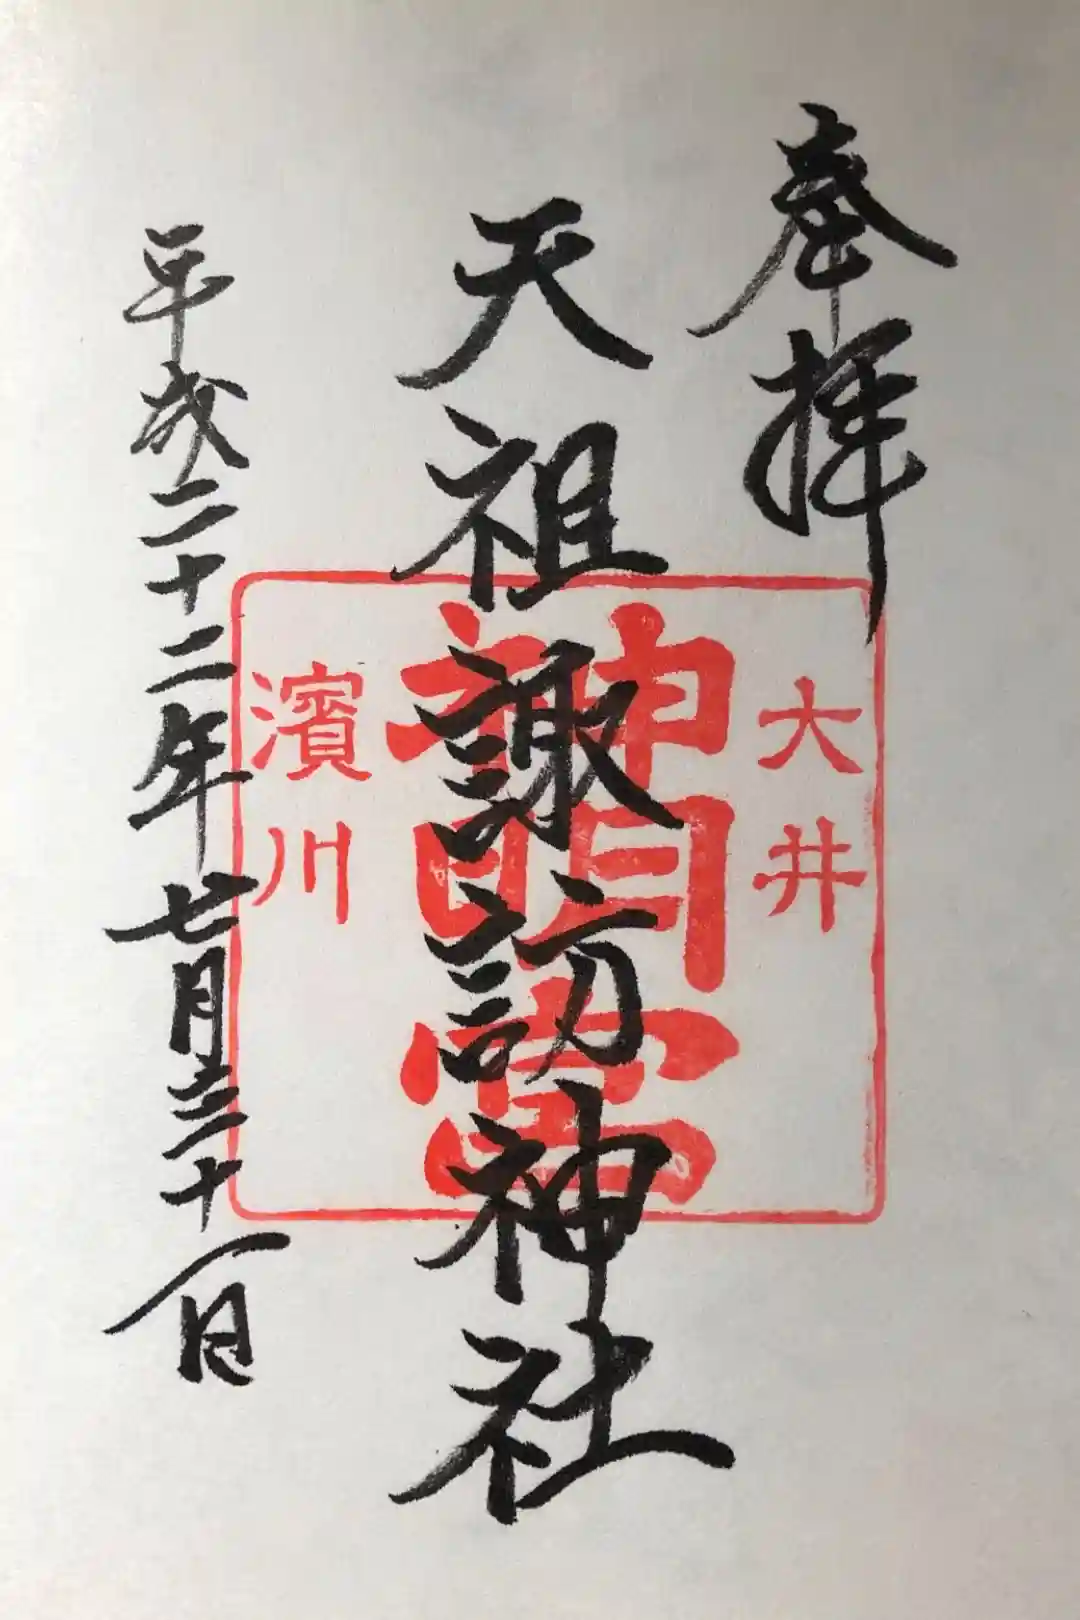 奉拝
大井
天祖諏訪神社
神明宮
濱川
平成二十二年七月三十一日